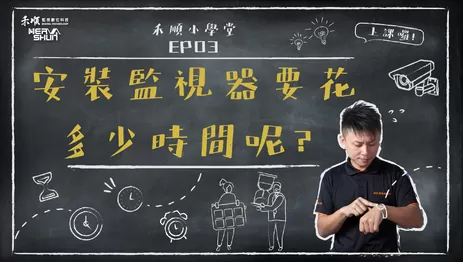 禾順
監視數位科技
HERVA
SHUN
禾順小學堂
EP03
上課囉!
安裝監視器要花
多少時間呢?